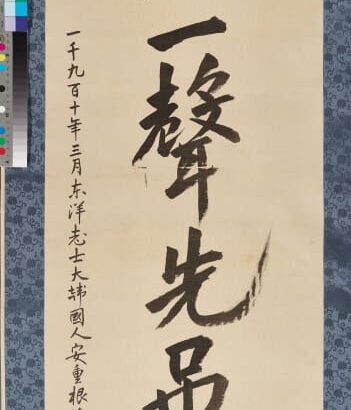 一聲先吊
一千九百十年三月东洋志士大韓國人安重根